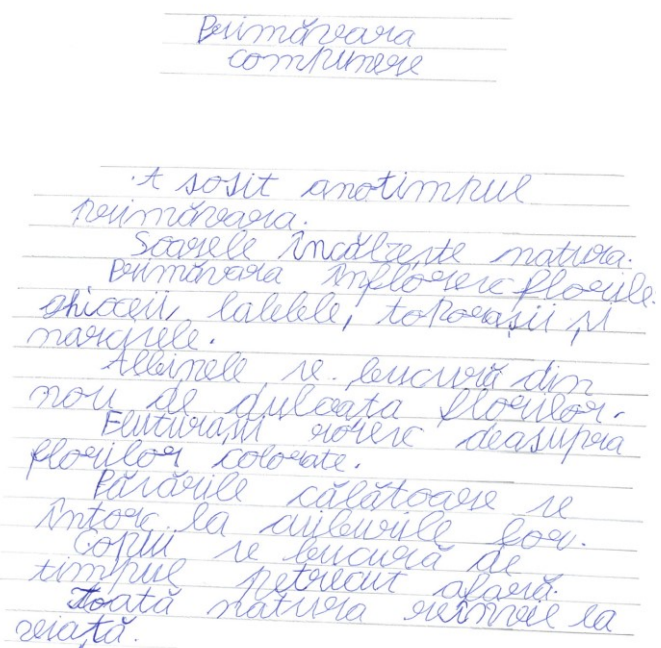 Primăvara
compunere
A sosit anotimpul
primăvara.
Soarele încălzește natura.
Primăvara înfloresc florile:
ghioceii, lalelele, toporașii și
narcisele.
Albinele se bucură din
nou de dulceața florilor.
Fluturașii zoresc deasupra
florilor colorate.
Păsările călătoare se
întorc la cuiburile lor.
Copiii se bucură de
timpul petrecut afară.
Toată natura reînvie la
viață.